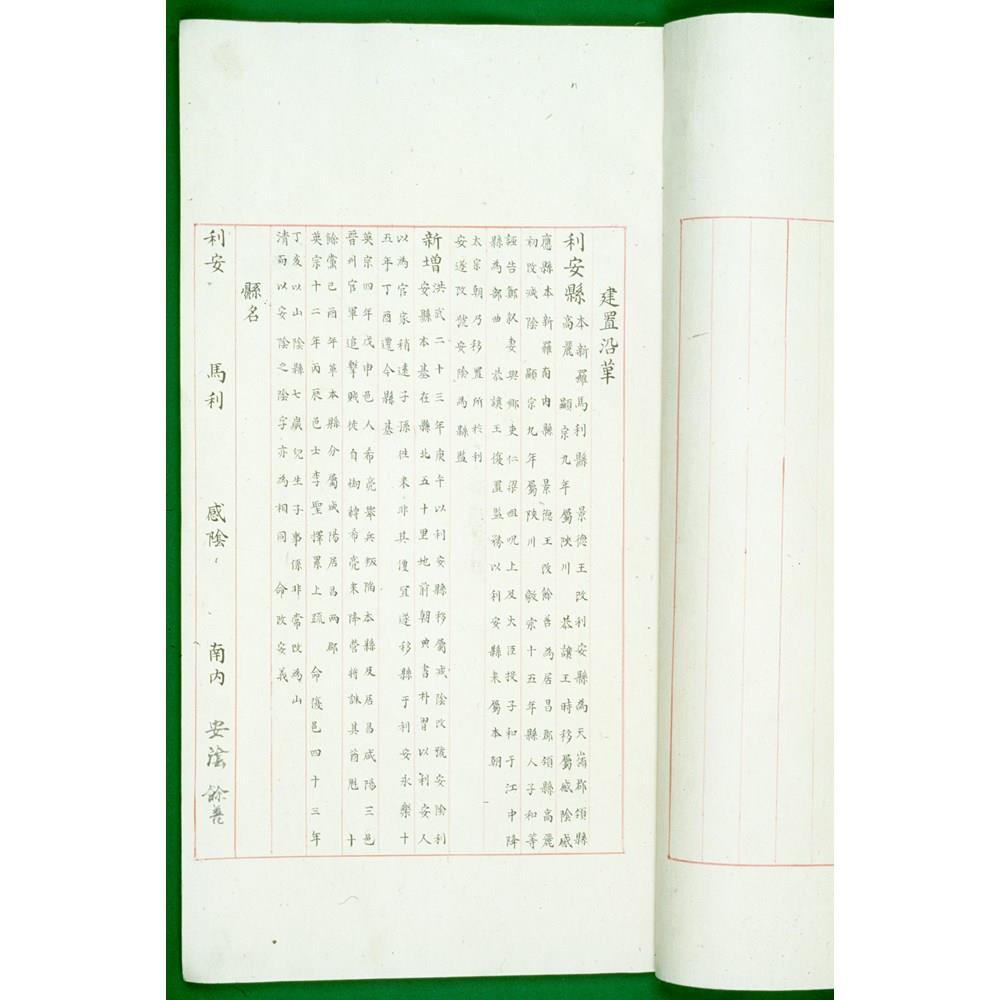 建置沿革
利安縣本新羅馬利縣景德王改利安縣為天嶺郡領縣
高麗顯宗九年屬陜川恭讓王時移屬感陰感
應縣本新羅南內縣景德王改餘善為居昌郡領縣高麗
初改感陰顯宗九年屬陜川毅宗十五年縣人子和等
誣告鄭敘妻與鄉吏仁梁咀呪上及大臣投子和于江中降
縣為部曲恭讓王復置監務以利安縣來屬本朝
太宗朝乃移置所於利
安遂改號安陰為縣監
新增洪武二十三年庚午以利安縣移屬感陰改號安陰利
安縣本基在縣北五十里地前朝典書朴習以利安人
以為官家稍遠子孫徃來非其便宜遂移縣于利安永樂十
五年丁酉還今縣基
英宗四年戊申邑人希亮擧兵叛陷本縣及居昌咸陽三邑
晉州官軍追擊賊徒自禍縛希亮來降營將誅其酋魁十
餘黨己酉年革本縣分屬咸陽居昌兩郡
英宗十二年丙辰邑士李聖擇累上疏命復邑四十三年
丁亥以山陰縣七歲兒生子事係非常改為山
清而以安陰之陰字亦為相同命改安義
縣名
利安 馬利 感陰 南內 安陰 餘善